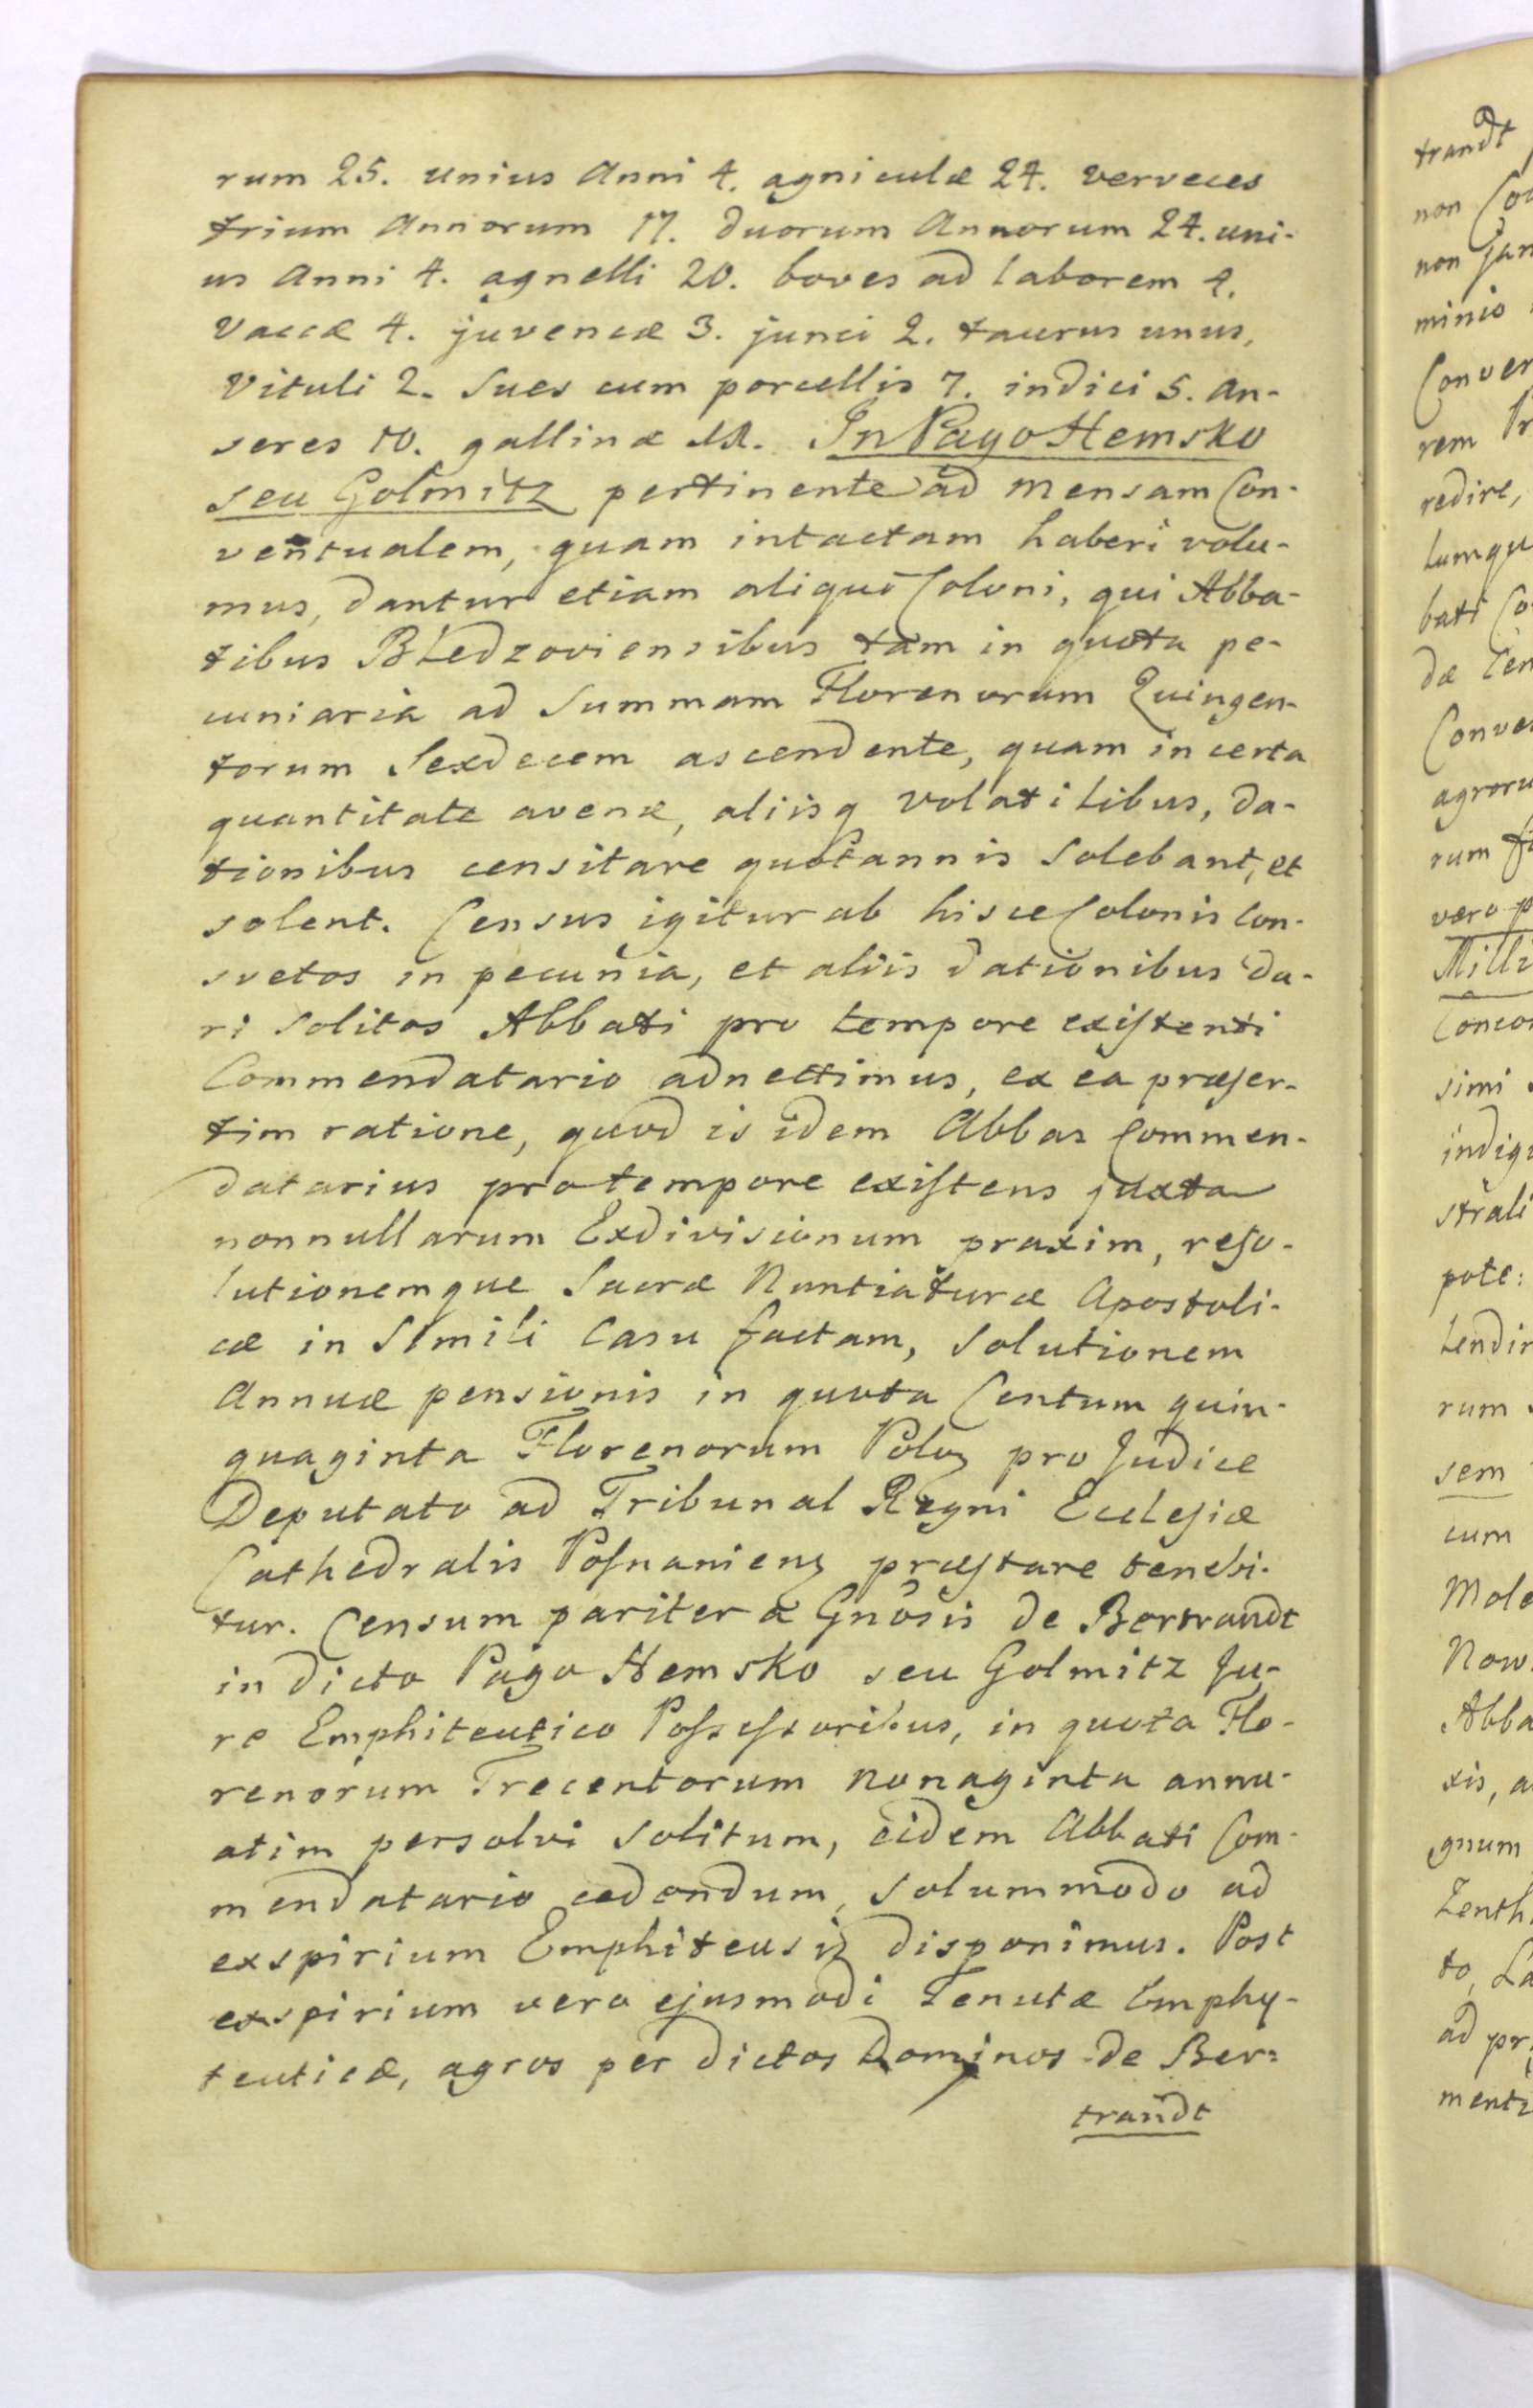 rum 25. unius Anni 4. agniculæ 24. verveces
trium Annorum 17. duorum Annorum 24. uni-
us Anni 4. agnelli 20. boves ad laborem 4.
Vaccæ 4. juvencæ 3. junci 2. taurus unus,
Vituli 2. Sues cum porcellis 7. indici 5. An-
seres 10. gallinæ 12. In Pago Hemsko
seu Golmitz pertinente ad Mensam Con-
ventualem, quam intactam haberi volu-
mus, dantur etiam aliqui Coloni, qui Abba-
tibus Bledzoviensibus tam in quota pe-
cuniaria ad Summam Florenorum Quingen-
torum Sexdecem ascendente, quam in certa
quantitate avenæ, aliisq volatilibus, da-
tionibus censitare quotannis Solebant, et
solent. Census igitur ab hisce Colonis Con-
svetos in pecunia, et aliis dationibus da-
ri Solitos Abbati pro tempore existenti
Commendatario adnectimus, ex ea præser-
tim ratione, quod is idem Abbas Commen-
datarius pro tempore existens juxta
nonnullarum Exdivisionum praxim, reso-
lutionemque Sacræ Nuntiaturæ Apostoli-
cæ in Simili Casu factam, Solutionem
Annuæ pensionis in quota Centum quin-
quaginta Florenorum Poloz pro Judice
Deputato ad Tribunal Regni Ecclesiæ
Cathedralis Posnanienz præstare tenebi-
tur. Censum pariter a Gnosis de Bertrandt
in dicto Pago Hemsko seu Golmitz Ju-
re Emphiteutico Possessoribus, in quota Flo-
renorum Trecentorum Nonaginta annu-
atim persolvi Solitum, eidem Abbati Com-
mendatario cedendum, Solummodo ad
exspirium Emphiteusiz disponimus. Post
exspirium vero ejusmodi Tenutæ Emphy-
teuticæ, agros per dictos Dominos de Ber=
trandt
trandt
non
non
minio
Conver
rem
redire,
lumqu
bati
dæ
Conve
agroru
rum
vero
Mill
Conco
simi
indig
strali
pote:
tendi
rum
sem
cum
Mole
Now
Abba
xis, a
gnum
Zenth
to, La
ad pr
ment